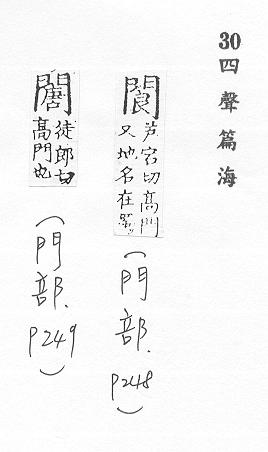 30四聲篇海
閬
芦宕切高門
又地名在蜀
（門部.P248）
徒郎切
高門也
（門部.P249）